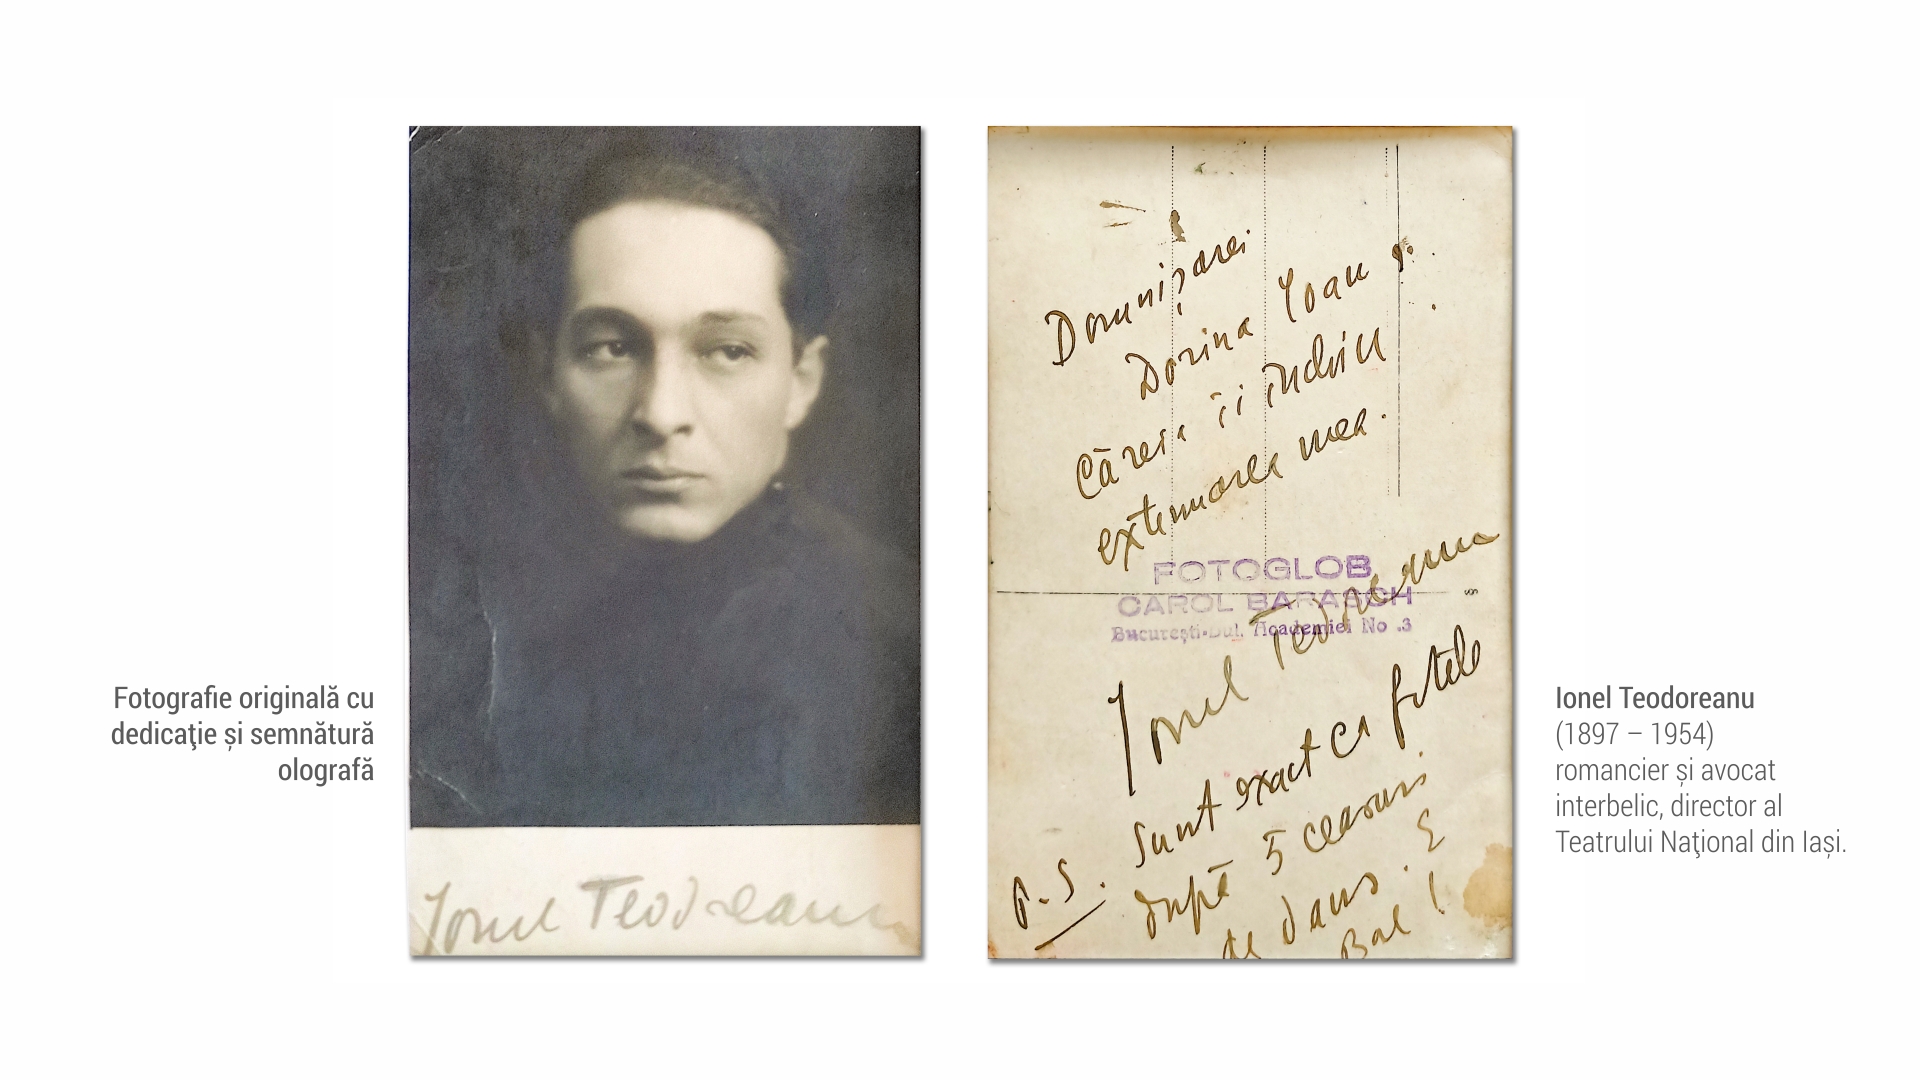 Fotografie originală cu
dedicaţie și semnătură
olografă
Ionel Teodoreanu
Domnișoarei
Dorina Ioan
Căreia îi închin
extenuarea mea.
FOTOGLOB
CAROL BARASCH
București-Bul. Academiei No .3
Ionel Teodoreanu
P.S. Sunt exact ca fetele
după 5 ceasuri
de dans.
Bal
Ionel Teodoreanu
(1897 – 1954)
romancier și avocat
interbelic, director al
Teatrului Naţional din Iași.